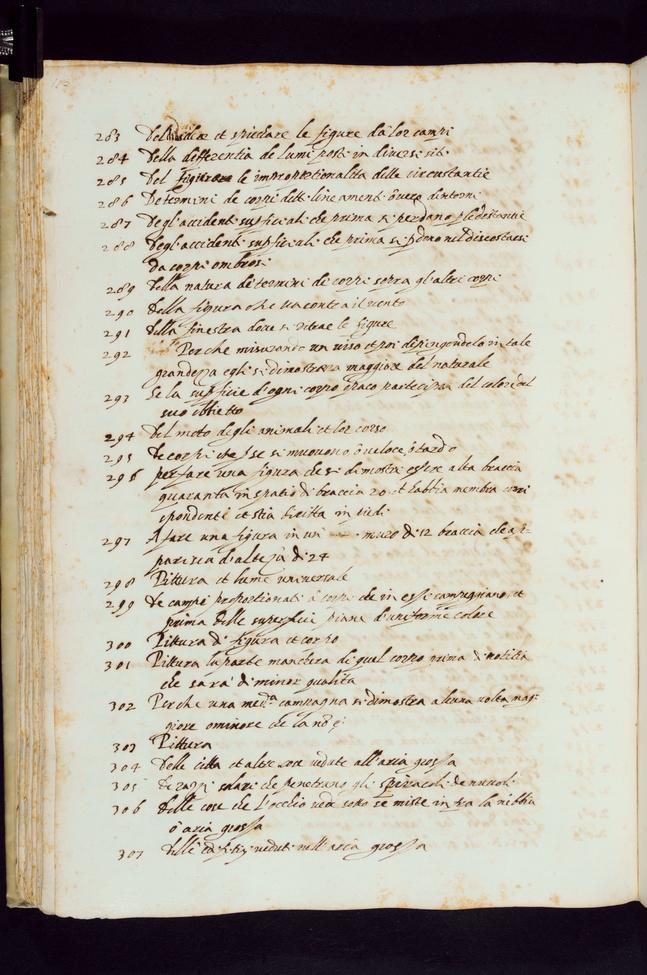 283 Del dividere et spiccare le figure da lor campi
284 Della differentia de lumi posti in diversi siti
285 Del fuggire le improportionalita delle circustantie
286 De termini de corpi detti lineamenti ouero dintorni
287 Degl'accidenti supficiali che prima si perdano p le distantie
288 Degl'accidenti supficiali che prima si pdono nel discostarsi
da corpi ombrosi
289 Della natura de termini de corpi sopra gl'altri corpi
290 Della figura che va contra il vento
291 Della finestra dove si ritrae le figure
292 Perche misurando un viso et poi dipingendolo in tale
grandezza egli si dimostrera maggiore del naturale
293 Se la supficie d'ogni corpo opaco partecipa del colore del
suo obbietto
294 Del moto degli animali et lor corso
295 De corpi che p se si muovono o veloce, o tardo
296 per fare una figura che si dimostri essere alta braccia
quaranta in spatio di braccia 20 et habbia membra corri
spondenti et stia diritta in piedi
297 A fare una figura in un muro di 12 braccia che ap
parisca d'altezza di 24
298 Pittura et lume universale
299 De campi proportionati a corpi che in essi campeggiano, et
prima delle superficie piane d'uniforme colore
300 Pittura di figura et corpo
301 Pittura la parte manchera di quel corpo prima di notitia
che sara di minor qualita
302 Perche una med.a campagna si dimostra alcuna volta mag
giore o minore che la nō è
303 Pittura
304 Delle citta et altre cose vedute all'aria grossa
305 De razzi solari che penetrano gli spiracoli de nuvoli
306 Delle cose che l'occhio vede sotto se miste in tra la nebbia
o aria grossa
307 Delli edifitij veduti nell'aria grossa